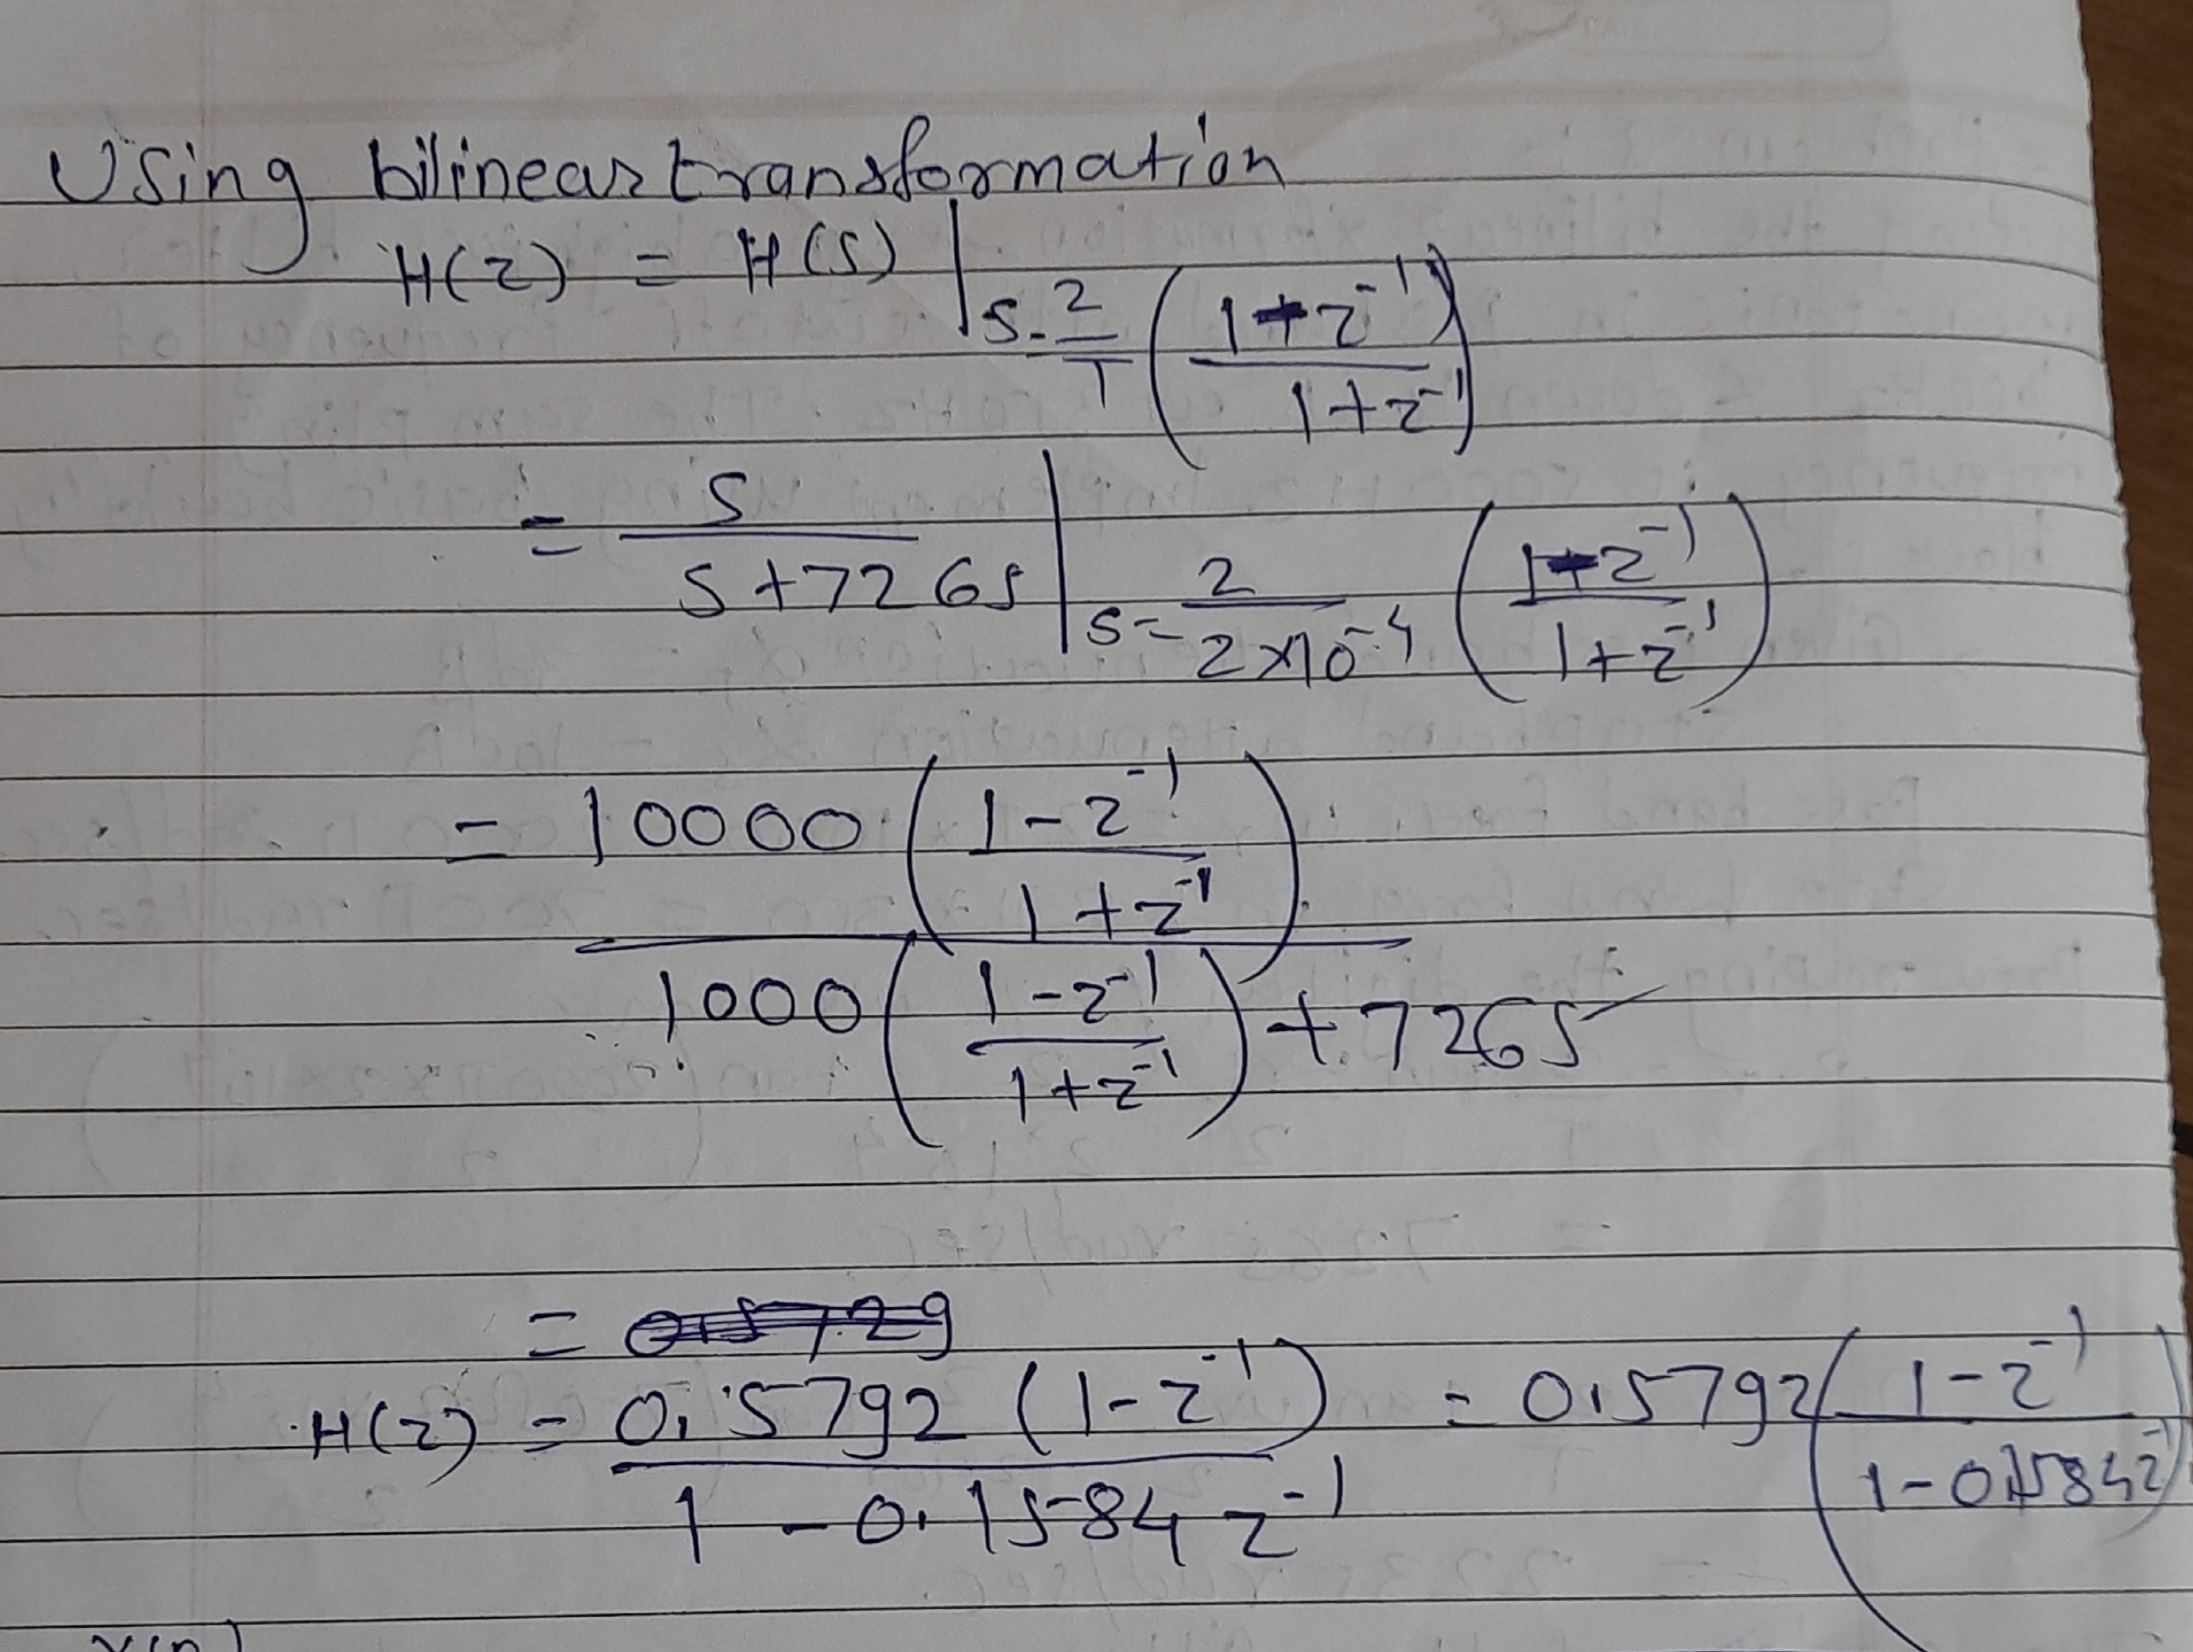 Using bilinear transformation
H(z) = H(s) | s = 2/T ( 1 - z^-1 / 1 + z^-1 )
= s / s + 7265 | s = 2 / 2×10^-4 ( 1 - z^-1 / 1 + z^-1 )
= 10000 ( 1 - z^-1 / 1 + z^-1 )
1000 ( 1 - z^-1 / 1 + z^-1 ) + 7265
=
H(z) = 0.5792 ( 1 - z^-1 ) / 1 - 0.1584 z^-1 = 0.5792 ( 1 - z^-1 / 1 - 0.1584 z^-1 )